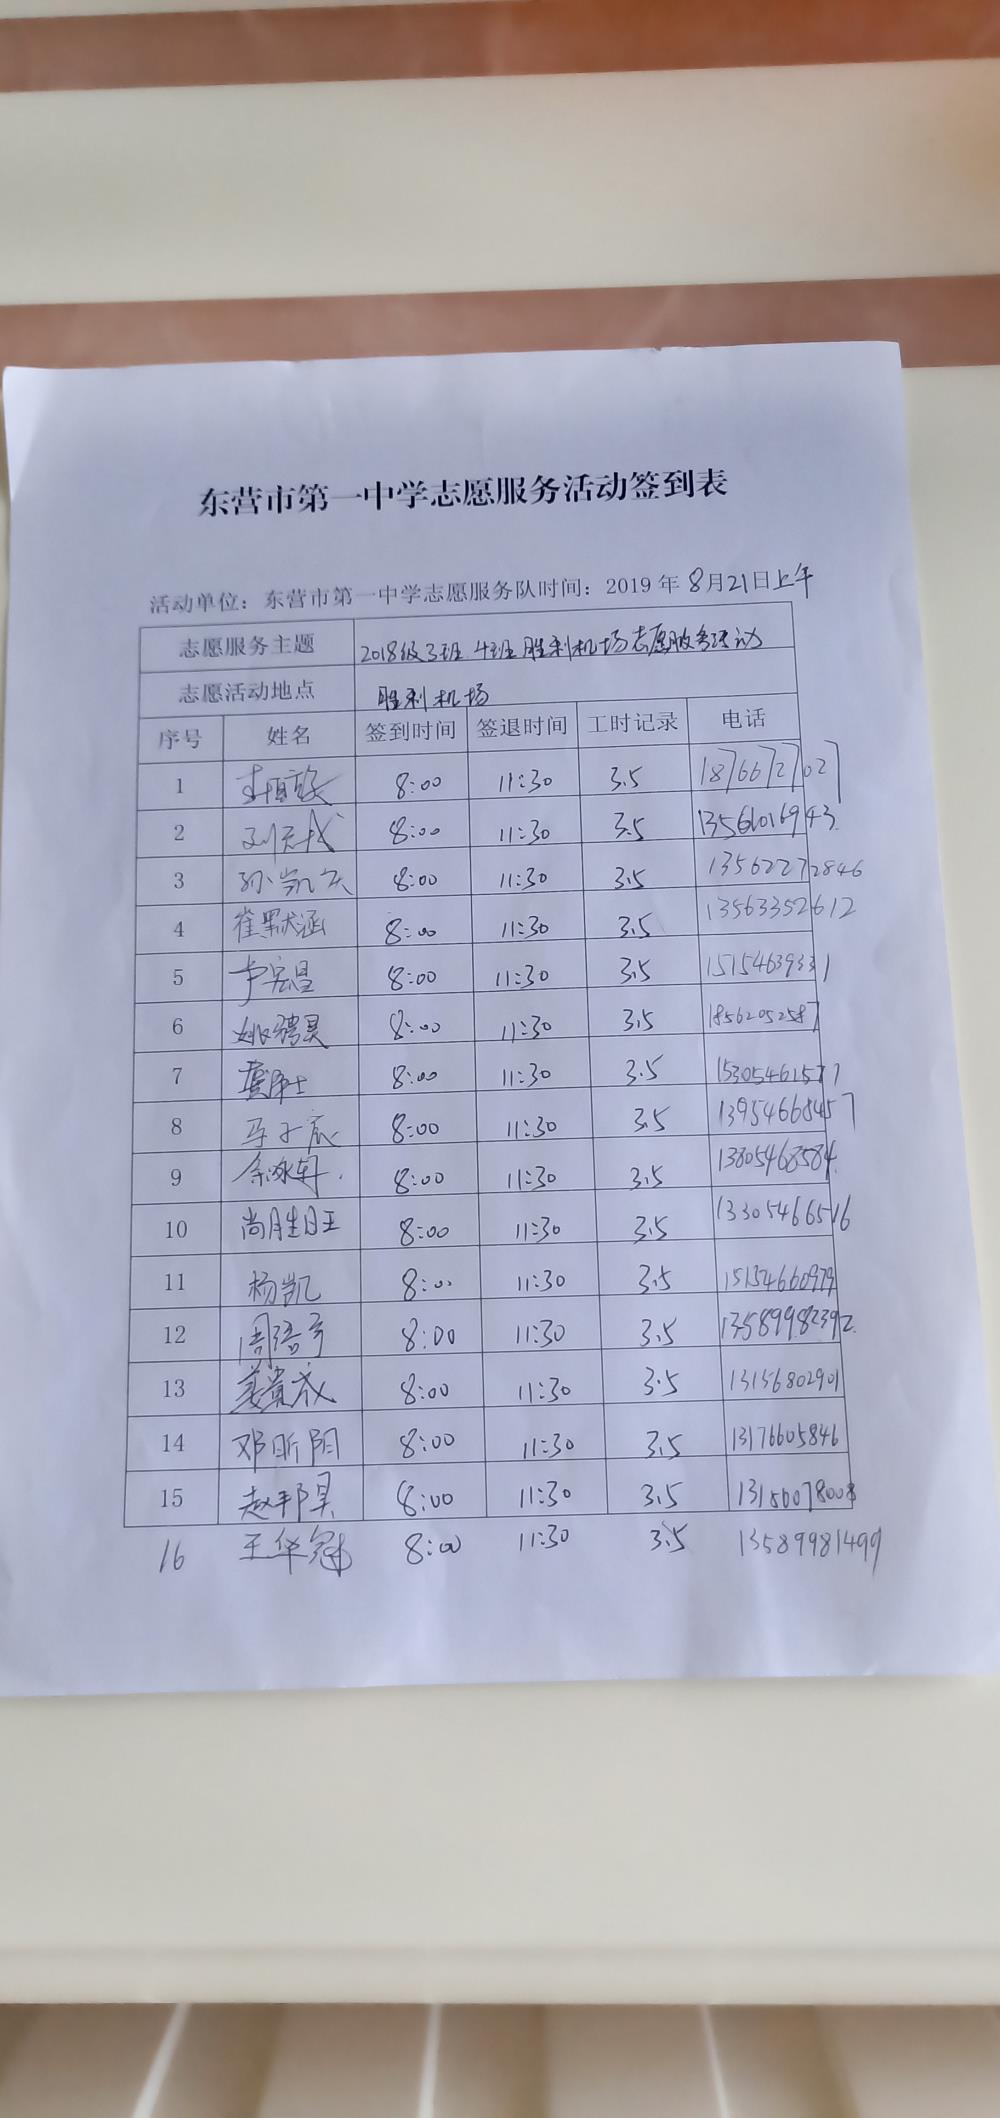 东营市第一中学志愿服务活动签到表
活动单位：东营市第一中学志愿服务队时间：2019年8月21日上午
志愿服务主题 2018级3班 4班胜利机场志愿服务活动
志愿活动地点 胜利机场
序号 姓名 签到时间 签退时间 工时记录 电话
1 8:00 11:30 3.5 18766727027
2 8:00 11:30 3.5 13561016943
3 孙凯 8:00 11:30 3.5 13562272846
4 崔默涵 8:00 11:30 3.5 13563352612
5 卢宏昌 8:00 11:30 3.5 15154639331
6 姚骋昊 8:00 11:30 3.5 18562052587
7 8:00 11:30 3.5 15305461577
8 马子宸 8:00 11:30 3.5 13954668457
9 余泳轩 8:00 11:30 3.5 13805468584
10 尚胜日王 8:00 11:30 3.5 13305466516
11 杨凯 8:00 11:30 3.5 15154660979
12 周浩宇 8:00 11:30 3.5 13589982392
13 姜贵成 8:00 11:30 3.5 13156802901
14 邓昕阳 8:00 11:30 3.5 13176605846
15 赵邦昊 8:00 11:30 3.5 13156078008
16 王华冠 8:00 11:30 3.5 13589981499